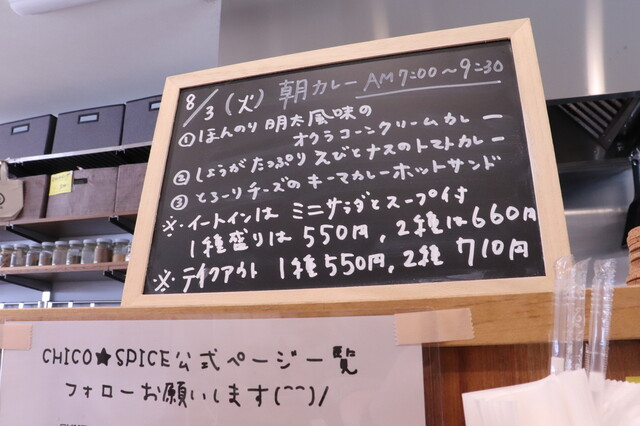 8/3(火) 朝カレー AM7:00〜9:30
① ほんのり明太風味の
オクラコーンクリームカレー
② しょうがたっぷりえびとナスのトマトカレー
③ とろーりチーズのキーマカレーホットサンド
※・イートインは ミニサラダとスープ付
1種盛りは 550円, 2種は660円
※・テイクアウト 1種550円, 2種 710円
CHICO★SPICE公式ページ一覧
フォローお願いします(^^)/